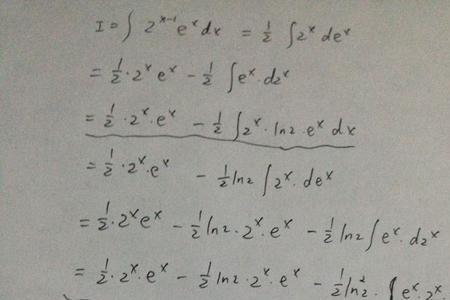 I = ∫ 2^{x-1} e^x dx = 1/2 ∫ 2^x de^x
= 1/2 · 2^x e^x - 1/2 ∫ e^x · d2^x
= 1/2 · 2^x · e^x - 1/2 ∫ 2^x · ln2 · e^x dx
= 1/2 · 2^x · e^x - 1/2 ln2 ∫ 2^x · de^x
= 1/2 · 2^x e^x - 1/2 ln2 · 2^x · e^x - 1/2 ln2 ∫ e^x · d2^x
= 1/2 · 2^x · e^x - 1/2 ln2 · 2^x · e^x - 1/2 ln^2 2 · ∫ e^x · 2^x